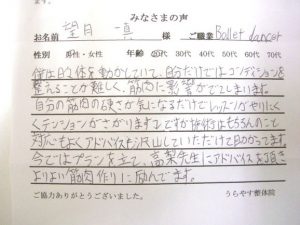 ます。
みなさまの声
お名前 望月 一真 様 ご職業 Ballet dancer
性別 男性・女性 年齢 20代 30代 40代 50代 60代 70代
毎日体を動かしていて、自分だけではコンディションを
整えることが難しく、筋肉に影響がでてしまいます。
自分の筋肉の硬さが気になるだけでレッスンがやりにく
くテンションがさがります。ですが施術はもちろんのこと
対応もよくアドバイスも沢山していただけて助かってます。
今ではプランを立て、高梨先生にアドバイスを頂き
よりよい筋肉作りに励んでます。
ご協力ありがとうございました。 うらやす整体院